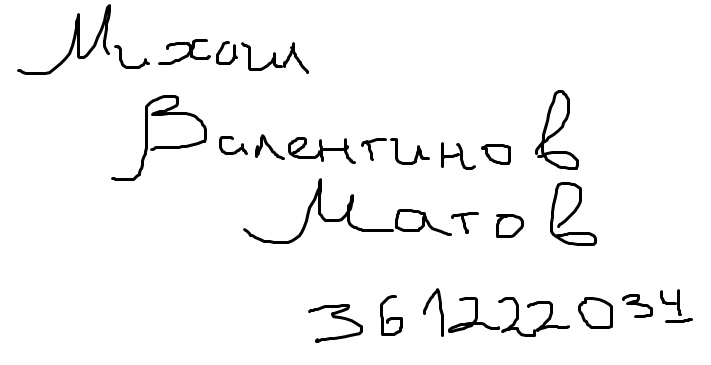 Михаил
Валентинов
Матов
361222034